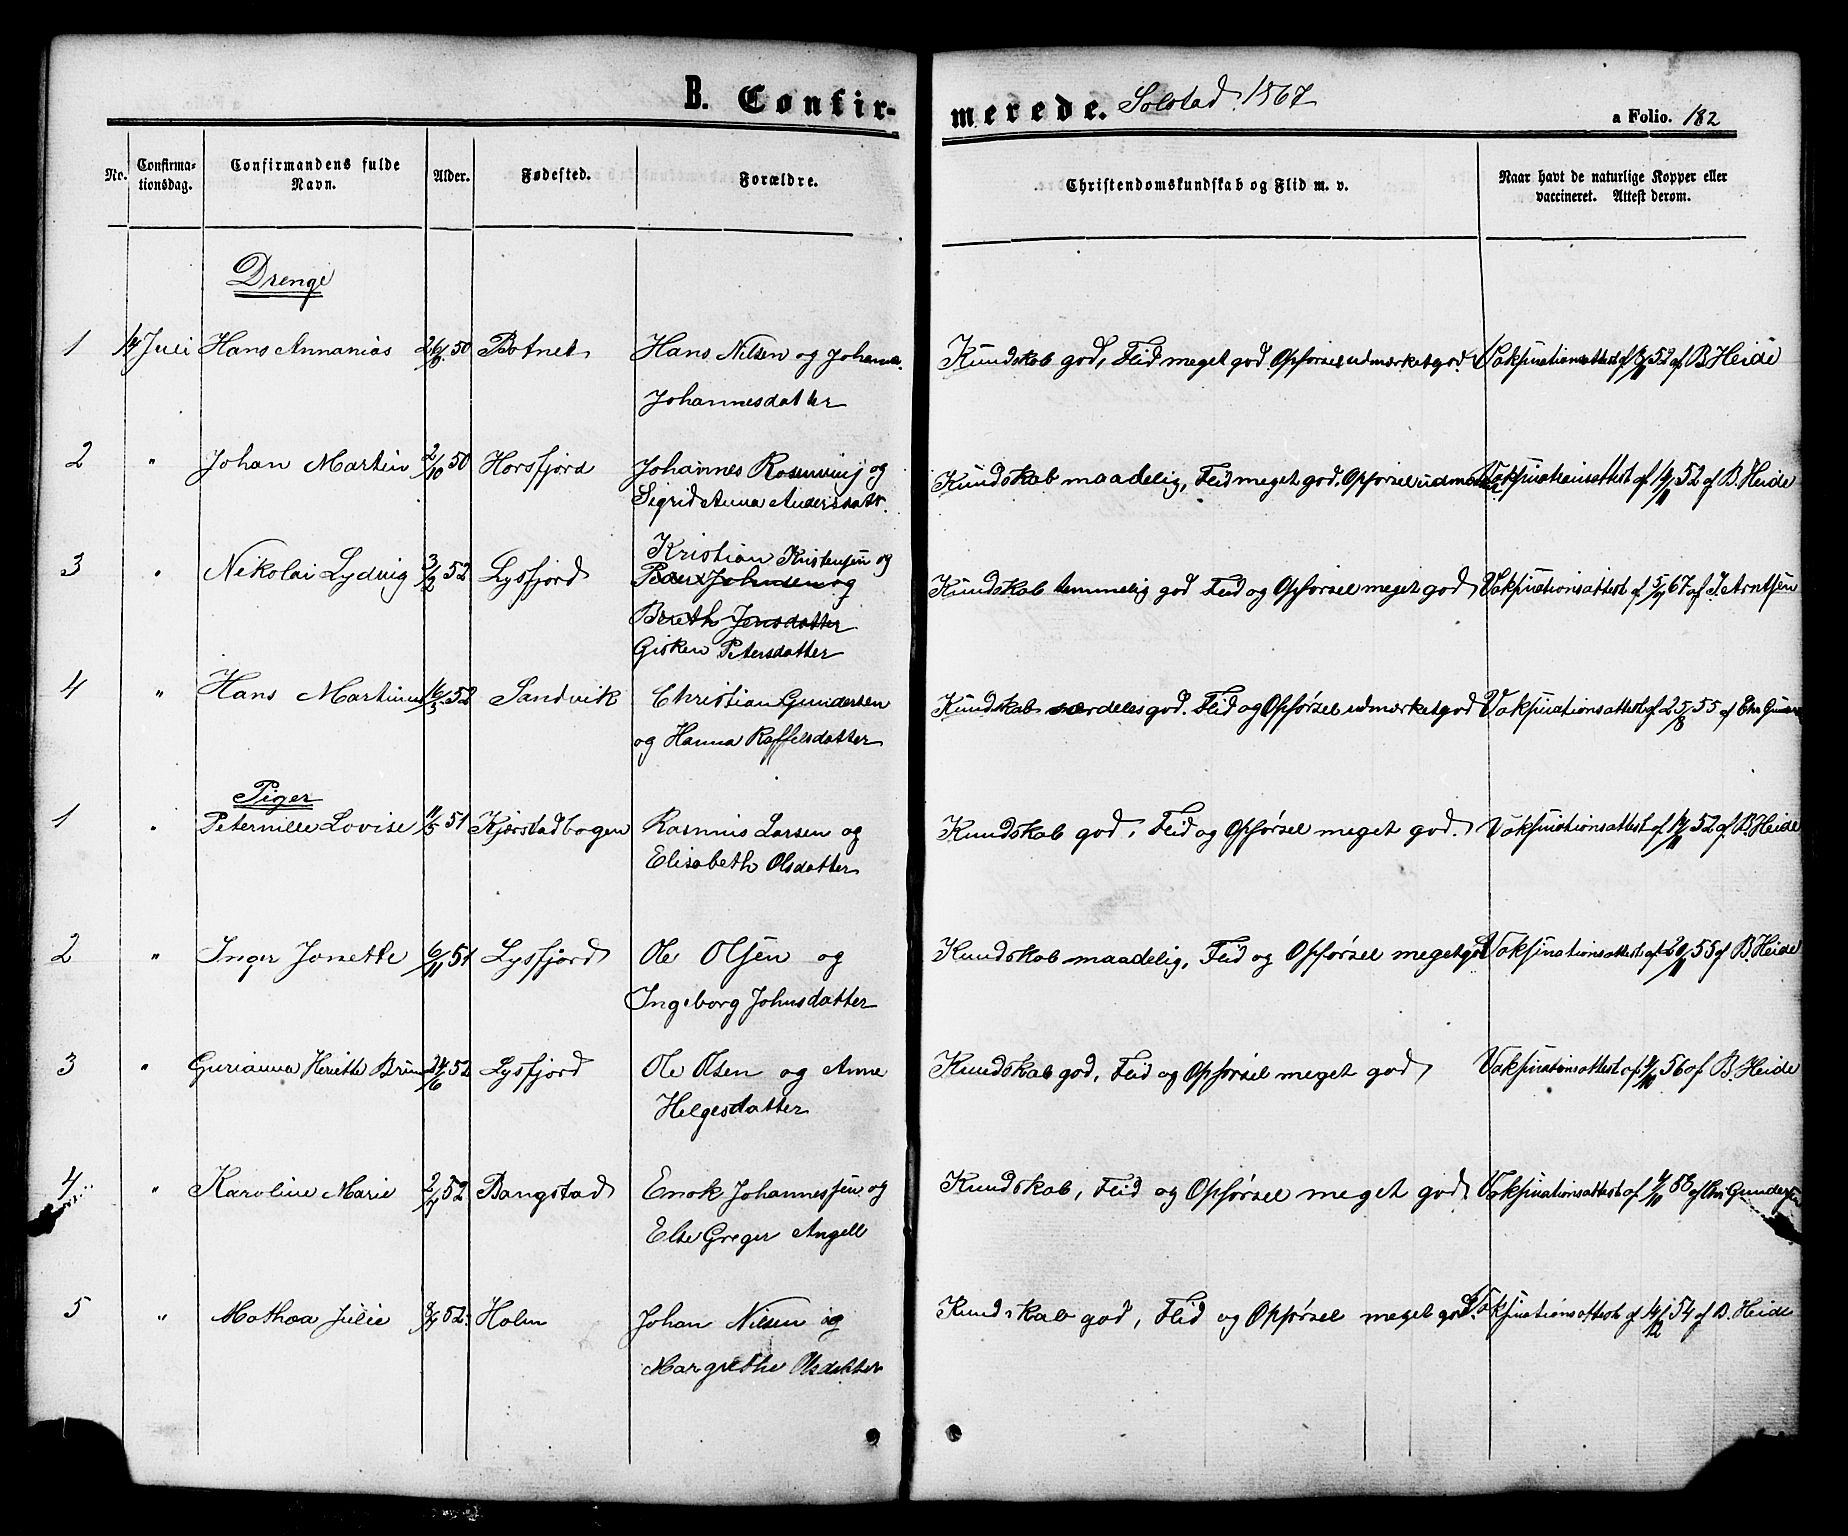 B. Confirmerede. Solstad 1867
a Folio. 182
No. Confirmationsdag. Confirmandens fulde Navn. Alder. Fødested. Forældre. Christendomskundskab og Flid m. v. Naar havt de naturlige Kopper eller vaccineret. Attest derom.
Drenge
1 14 Juli Hans Annanias 50 Botnet Hans Nilsen og Johanna Kundskab god, Flid meget god Opførsel udmærket god. Vaksinationsattest af 52 af B Heide
Johannesdatter
2 " Johan Martin 2/10 50 Horsfjord Johannes Rosenvinj og Kundskab maadelig, Flid meget god. Opførsel Vaksinationsattest af 14/11 52 af B. Heide
Sigrid Anna Andersdatr.
3 " Nikolai Lydvig 3/2 52 Lysfjord Kristian Kristensen og Kundskab temmelig god Flid og Opførsel meget god Vaksinationsattest af 67 af J. Arntsen
Johnsen og
Bereth Jensdatter
Gisken Petersdatter
4 " Hans Martinus 16/3 52 Sandvik Christian Gundersen Kundskab særdeles god. Flid og Opførsel udmærket god Vaksinationsattest af 25/8 55 af Chr
og Hanna Raffelsdatter
Piger
1 " Peternille Lovise 11/5 51 Kjørstadbogen Rasmus Larsen og Kundskab god, Flid og Opførsel meget god. Vaksinationsattest af 14/11 52 af B. Heide
Elisabeth Olsdatter
2 " Inger Jonette 6/11 51 Lysfjord Ole Olsen og Kundskab maadelig, Flid og Opførsel meget god Vaksinationsattest af 20/11 55 af B. Heide
Ingeborg Johnsdatter
3 " Gurianna Heriette Brun 24/6 52 Lysfjord Ole Olsen og Anne Kundskab god, Flid og Opførsel meget god Vaksinationsattest af 56 af B. Heide
Helgesdatter
4 " Karoline Marie 52 Bangstad Enok Johannessen og Kundskab, Flid og Opførsel meget god Vaksinationsattest af af Chr Gundersen
Else Greger Angell
5 " Mathea Julie 52 Holm Johan Nilsen og Kundskab god, Flid og Opførsel meget god. Vaksinationsattest af 14/12 54 af B. Heide
Margrethe Olsdatter